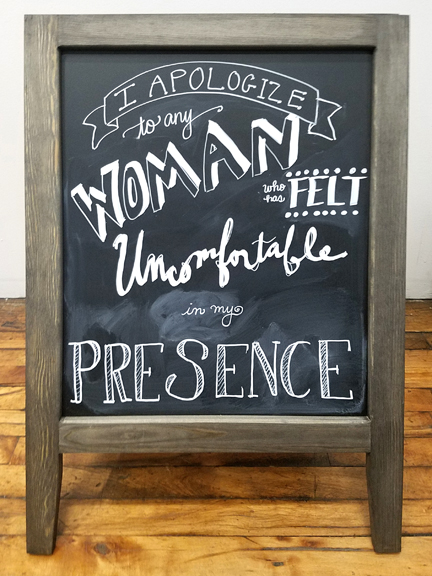 I APOLOGIZE
to any
WOMAN
who has FELT
Uncomfortable
in my
PRESENCE